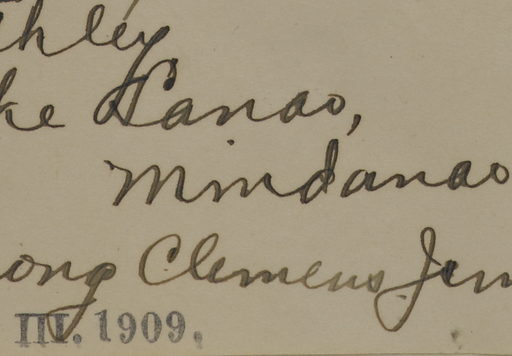 thley
ke Lanao,
Mindanao
ong Clemens Jun
III. 1909.